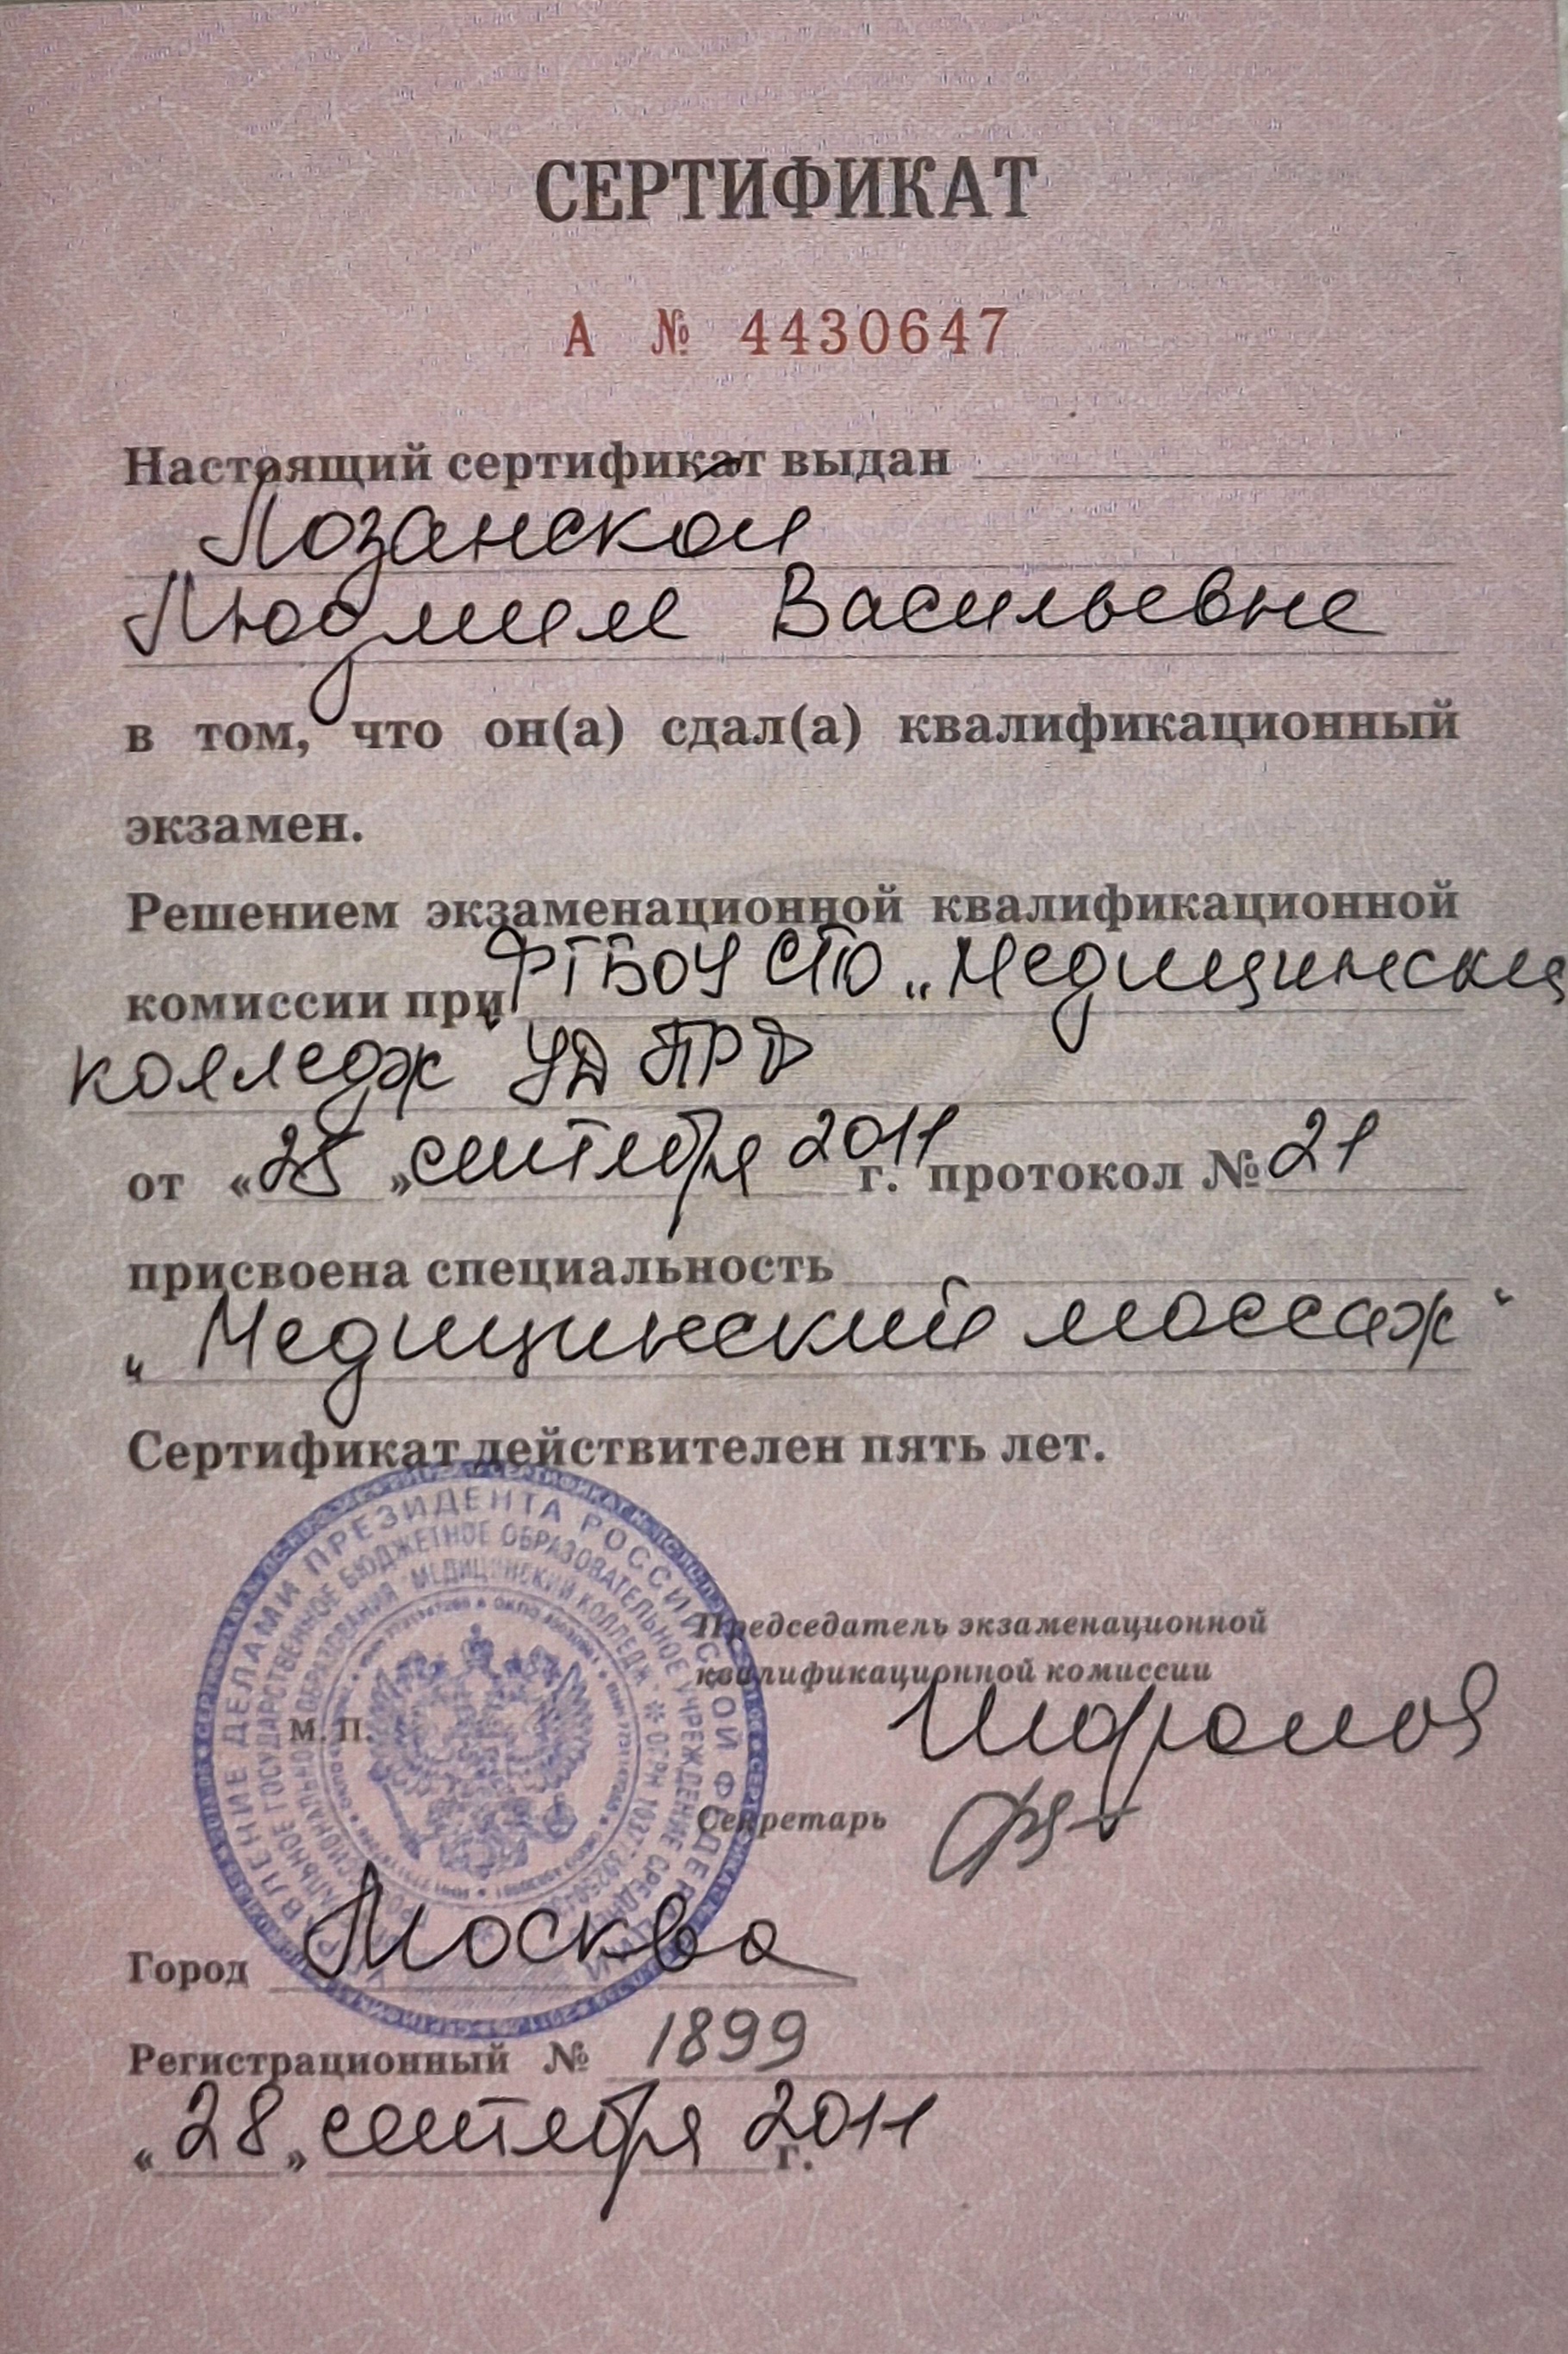 СЕРТИФИКАТ
А № 4430647
Настоящий сертификат выдан
Лозанской
Людмиле Васильевне
в том, что он(а) сдал(а) квалификационный
экзамен.
Решением экзаменационной квалификационной
комиссии при ФГБОУ СПО „Медицинский
колледж" УД ПРФ
от « » сентября 2011 г. протокол № 21
присвоена специальность
„Медицинский массаж"
Сертификат действителен пять лет.
УПРАВЛЕНИЕ ДЕЛАМИ ПРЕЗИДЕНТА РОССИЙСКОЙ ФЕДЕРАЦИИ
БЮДЖЕТНОЕ ОБРАЗОВАТЕЛЬНОЕ УЧРЕЖДЕНИЕ
МЕДИЦИНСКИЙ КОЛЛЕДЖ
Председатель экзаменационной
квалификационной комиссии
М. П.
Секретарь
Город Москва
Регистрационный № 1899
«28» сентября 2011 г.